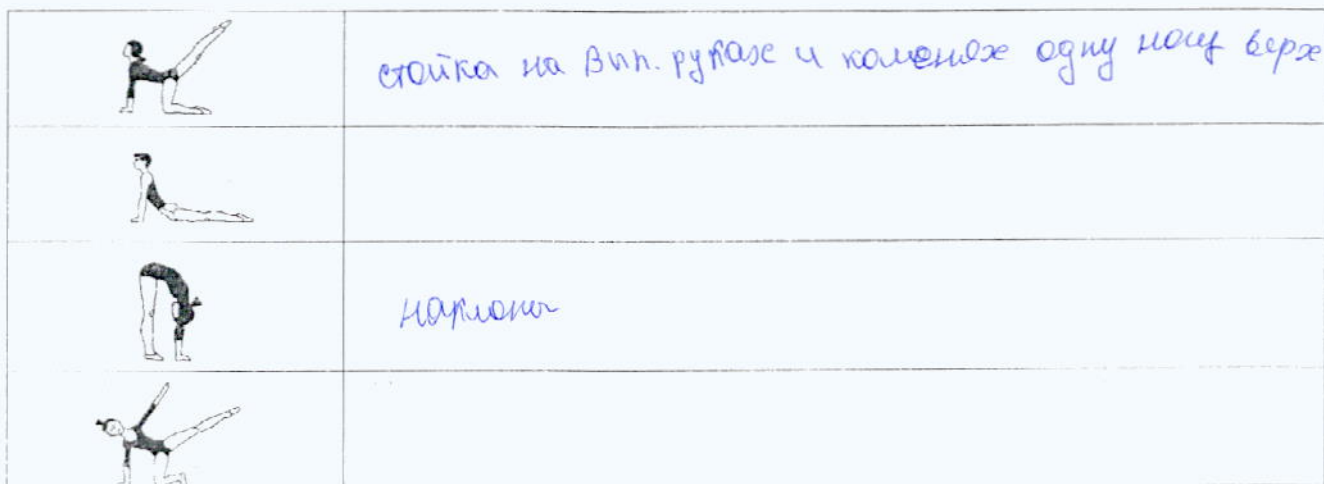 стойка на вып. руках и коленях одну ногу верх
наклоны